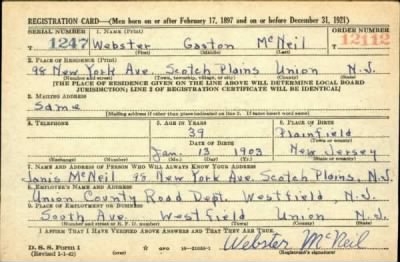 REGISTRATION CARD—(Men born on or after February 17, 1897 and on or before December 31, 1921)
SERIAL NUMBER 1. NAME (Print) ORDER NUMBER
T 1247 Webster Gaston McNeil 12112
(First) (Middle) (Last)
2. PLACE OF RESIDENCE (Print)
98 New York Ave. Scotch Plains Union N.J.
(Number and street) (Town, township, village, or city) (County) (State)
[THE PLACE OF RESIDENCE GIVEN ON THE LINE ABOVE WILL DETERMINE LOCAL BOARD
JURISDICTION; LINE 2 OF REGISTRATION CERTIFICATE WILL BE IDENTICAL]
3. MAILING ADDRESS
Same
[Mailing address if other than place indicated on line 2. If same insert word same]
4. TELEPHONE 5. AGE IN YEARS 6. PLACE OF BIRTH
39 Plainfield
DATE OF BIRTH (Town or county)
Jan. 13 1903 New Jersey
(Exchange) (Number) (Mo.) (Day) (Yr.) (State or country)
7. NAME AND ADDRESS OF PERSON WHO WILL ALWAYS KNOW YOUR ADDRESS
Janis McNeil 98 New York Ave. Scotch Plains, N.J.
8. EMPLOYER'S NAME AND ADDRESS
Union County Road Dept. Westfield, N.J.
9. PLACE OF EMPLOYMENT OR BUSINESS
South Ave. Westfield Union N.J.
(Number and street or R. F. D. number) (Town) (County) (State)
I AFFIRM THAT I HAVE VERIFIED ABOVE ANSWERS AND THAT THEY ARE TRUE.
D. S. S. Form 1
(Revised 1-1-42) GPO 16—21630-1 Webster McNeil
(Registrant's signature)